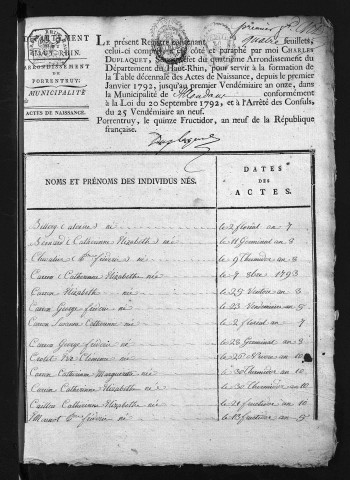 DÉPARTEMENT
DU HAUT-RHIN.
ARRONDISSEMENT
DE
PORRENTRUY.
MUNICIPALITÉ
ACTES DE NAISSANCE.
premier
LE présent Registre contenant quatre feuillets,
celui-ci compris, a été coté et paraphé par moi CHARLES
DUPLAQUET, Sous-préfet du quatrième Arrondissement du
Département du Haut-Rhin, pour servir à la formation de
la Table décennale des Actes de Naissance, depuis le premier
Janvier 1792, jusqu'au premier Vendémiaire an onze, dans
la Municipalité de conformément
à la Loi du 20 Septembre 1792, et à l'Arrêté des Consuls,
du 25 Vendémiaire an neuf.
Porrentruy, le quinze Fructidor, an neuf de la République
française.
Duplaquet
NOMS ET PRÉNOMS DES INDIVIDUS NÉS.
DATES
DES
ACTES.
né le 2 floréal an 7
Bernard Catherinne Elizabeth née le 11 Germinal an 8
Chevalier né le 9 Thermidor an 8
Carin Catherinne Elizabethe née le 7 8bre 1793
Carin Elizabeth née le 29 Ventose an 3
Carin George frédéric né le 23 Vendémiaire an 5
Carin Catherinne née le 2 floréal an 7
Carin George fréderic né le 28 Germinal an 8
née le 26 Nivose an 10
Carin Catherinne Margueritte née le 30 Thermidor an 10
Carin Catherinne Elizabeth née le 30 Thermidor an 10
Cailler Catherinne Elizabeth née le 21 fructidor an 10
né le 13 fructidor an 5